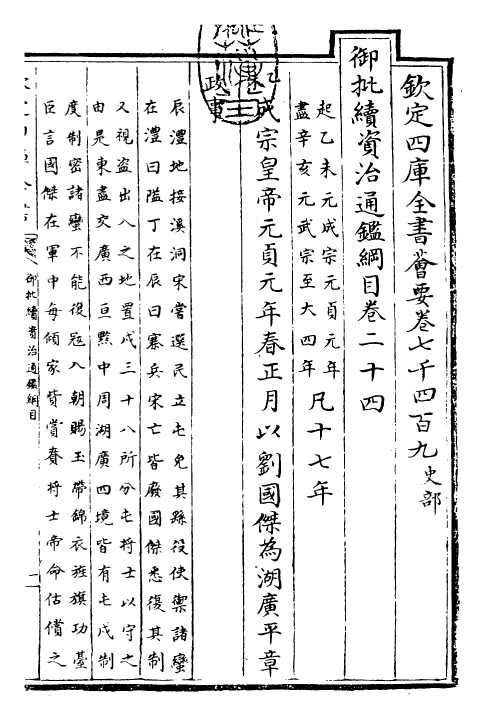 欽定四庫全書薈要卷七千四百九 史部
御批續資治通鑑綱目卷二十四
起乙未元成宗元貞元年
盡辛亥元武宗至大四年
凡十七年
成宗皇帝元貞元年春正月以劉國傑為湖廣平章
政事
辰澧地接溪洞宋嘗選民立屯免其繇役使禦諸蠻
在澧曰隘丁在辰曰寨兵宋亡皆廢國傑悉復其制
又視盜出入之地置戍三十八所分屯將士以守之
由是東盡交廣西亘黔中周湖廣四境皆有屯戍制
度制密諸蠻不能復寇入朝賜玉帶錦衣旌旗功臺
臣言國傑在軍中每傾家貲賞賚將士帝命估償之
御批續資治通鑑綱目
一